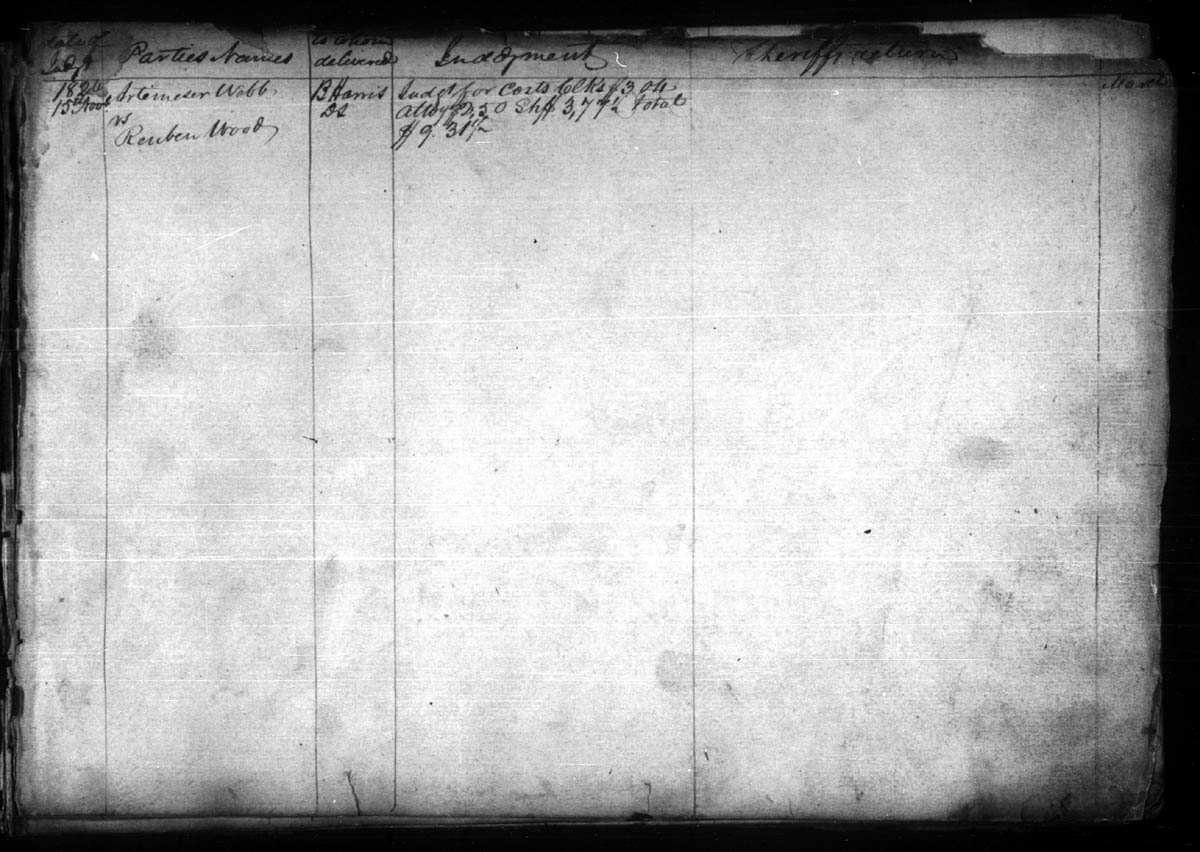 date of
Parties Names
to whom
delivered
Judgment
Sheriffs return
15th Novr
Artemeser Webb
vs
Reuben Wood
B Harris
DS
Judgt for Costs Clks $3,04
Atty $2,50 Shff 3,77½ Total
$9.31½
March